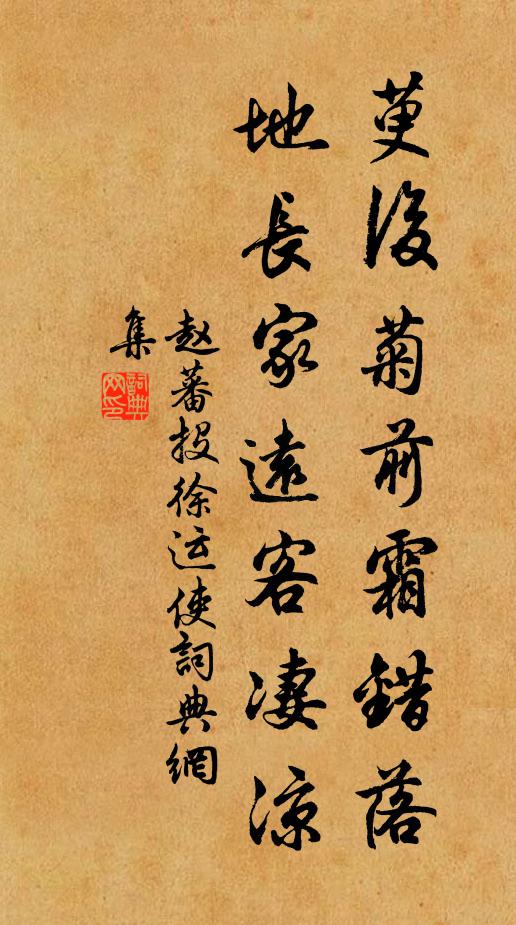 萸後菊前霜錯落
地長家遠客凄涼
赵蕃投徐运使詞典網
集
詞典网印